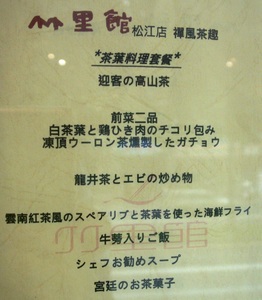 竹里館 松江店 禪風茶趣
*茶葉料理套餐*
迎客の高山茶
前菜二品
白茶葉と鶏ひき肉のチコリ包み
凍頂ウーロン茶燻製したガチョウ
龍井茶とエビの炒め物
雲南紅茶風のスペアリブと茶葉を使った海鮮フライ
牛蒡入りご飯
シェフお勧めスープ
宮廷のお茶菓子